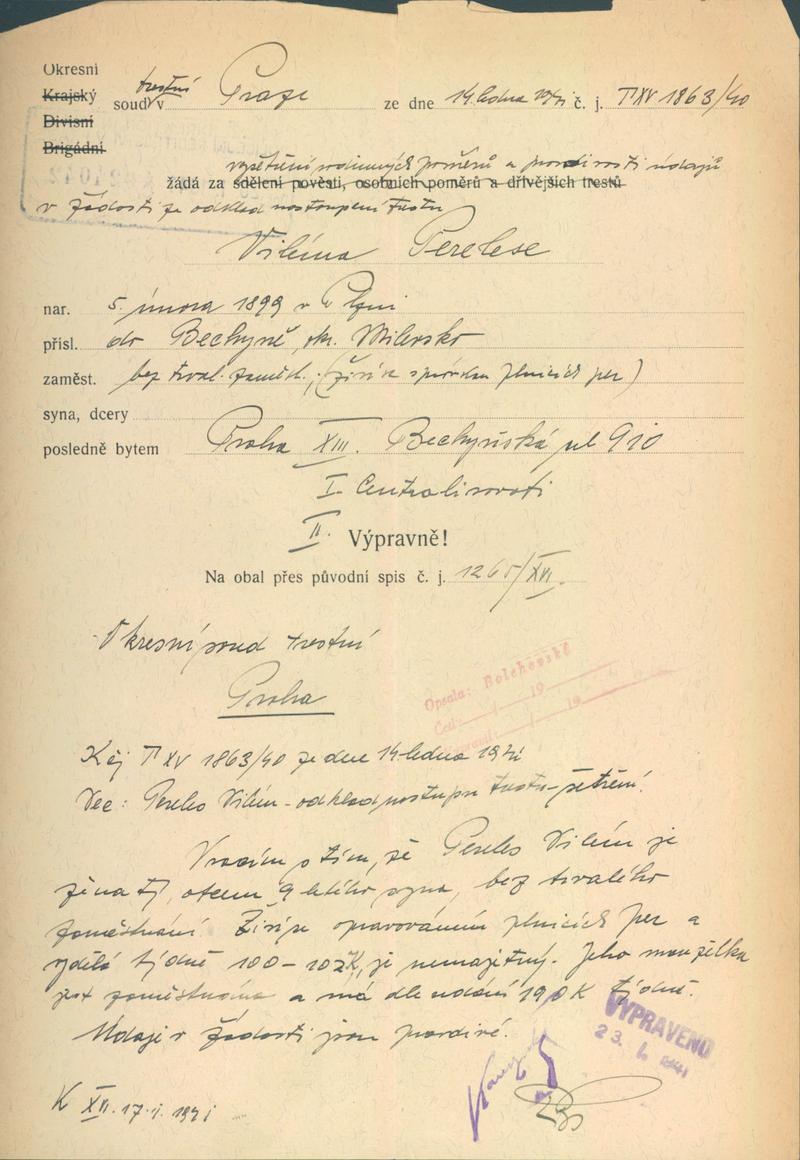 Okresní
Krajský
Divisní
Brigádní
trestní
soud v Praze ze dne 14. ledna 1941 č. j. T XV 1863/40
vyšetření rodinných poměrů a pravdivosti údajů
žádá za sdělení pověsti, osobních poměrů a dřívějších trestů
v žádosti ze odklad nastoupení trestu
Viléma Perelese
nar. 5. února 1899 v Plzni
přísl. do Bechyně, okr. Milevsko
zaměst. bez trval. zaměst., (živí se správkou plnicích per)
syna, dcery
posledně bytem Praha XIII. Bechyňská ul 910
I. Centralisovati
II. Výpravně!
Na obal přes původní spis č. j. 1265/XVI.
Okresní soud trestní
Praha
Opsala: Bolehovské
19
19
K čj T XV 1863/40 ze dne 14. ledna 1941
Věc: Pereles Vilém - odklad nástupu trestu - šetření.
Vracím s tím, že Pereles Vilém je
ženatý, otcem 9 letého syna, bez trvalého
zaměstnání. Živí se opravováním plnicích per a
vydělá týdně 100 - 102 K, je nemajetný. Jeho manželka
jest zaměstnána a má dle udání 190 K týdně.
Údaje v žádosti jsou pravdivé.
VYPRAVENO
23. 1. 1941
K XVI. 17. I. 1941